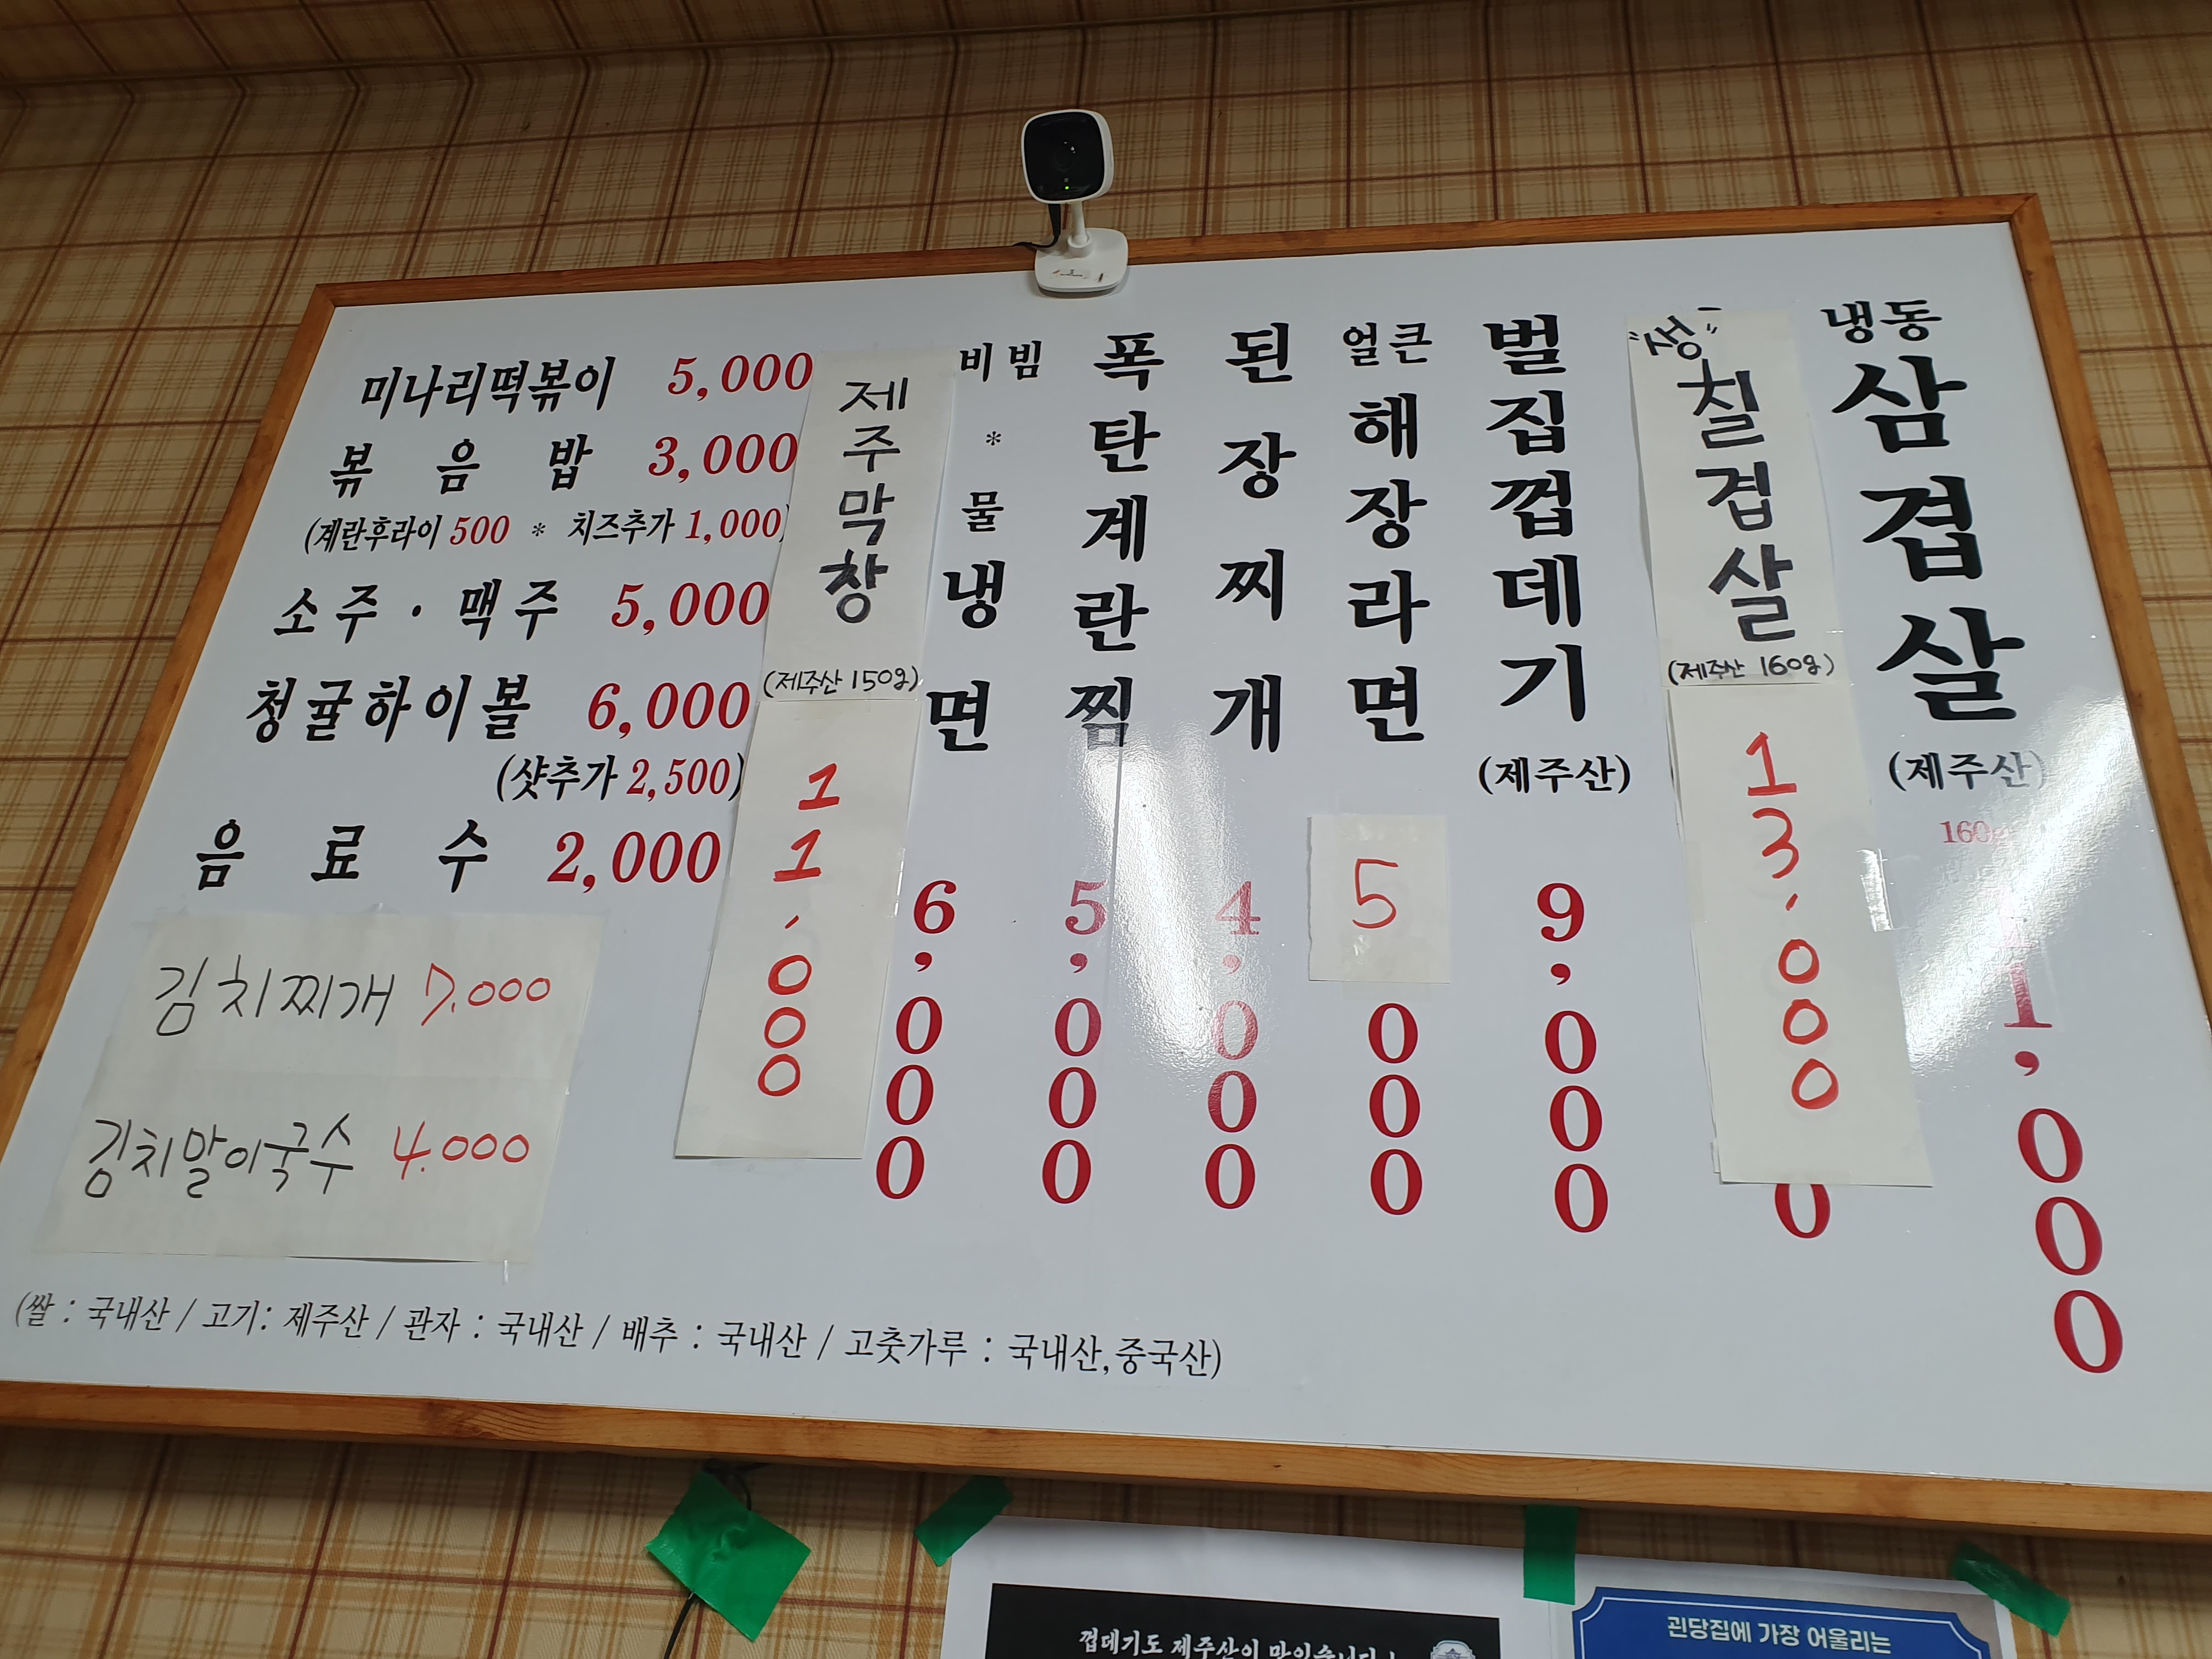 냉동
삼겹살
(제주산)
160g
11,000
"생"
칠겹살
(제주산 160g)
13,000
0
벌집껍데기
(제주산)
9,000
얼큰
해장라면
5
000
된장찌개
4,000
폭탄계란찜
5,000
비빔 * 물
냉면
6,000
제주막창
(제주산 150g)
11,000
미나리떡볶이 5,000
볶음밥 3,000
(계란후라이 500 * 치즈추가 1,000)
소주 · 맥주 5,000
청귤하이볼 6,000
(샷추가 2,500)
음료수 2,000
김치찌개 7.000
김치말이국수 4.000
(쌀 : 국내산 / 고기: 제주산 / 관자 : 국내산 / 배추 : 국내산 / 고춧가루 : 국내산,중국산)
껍데기도 제주산이 맛있습니다!
괸당집에 가장 어울리는